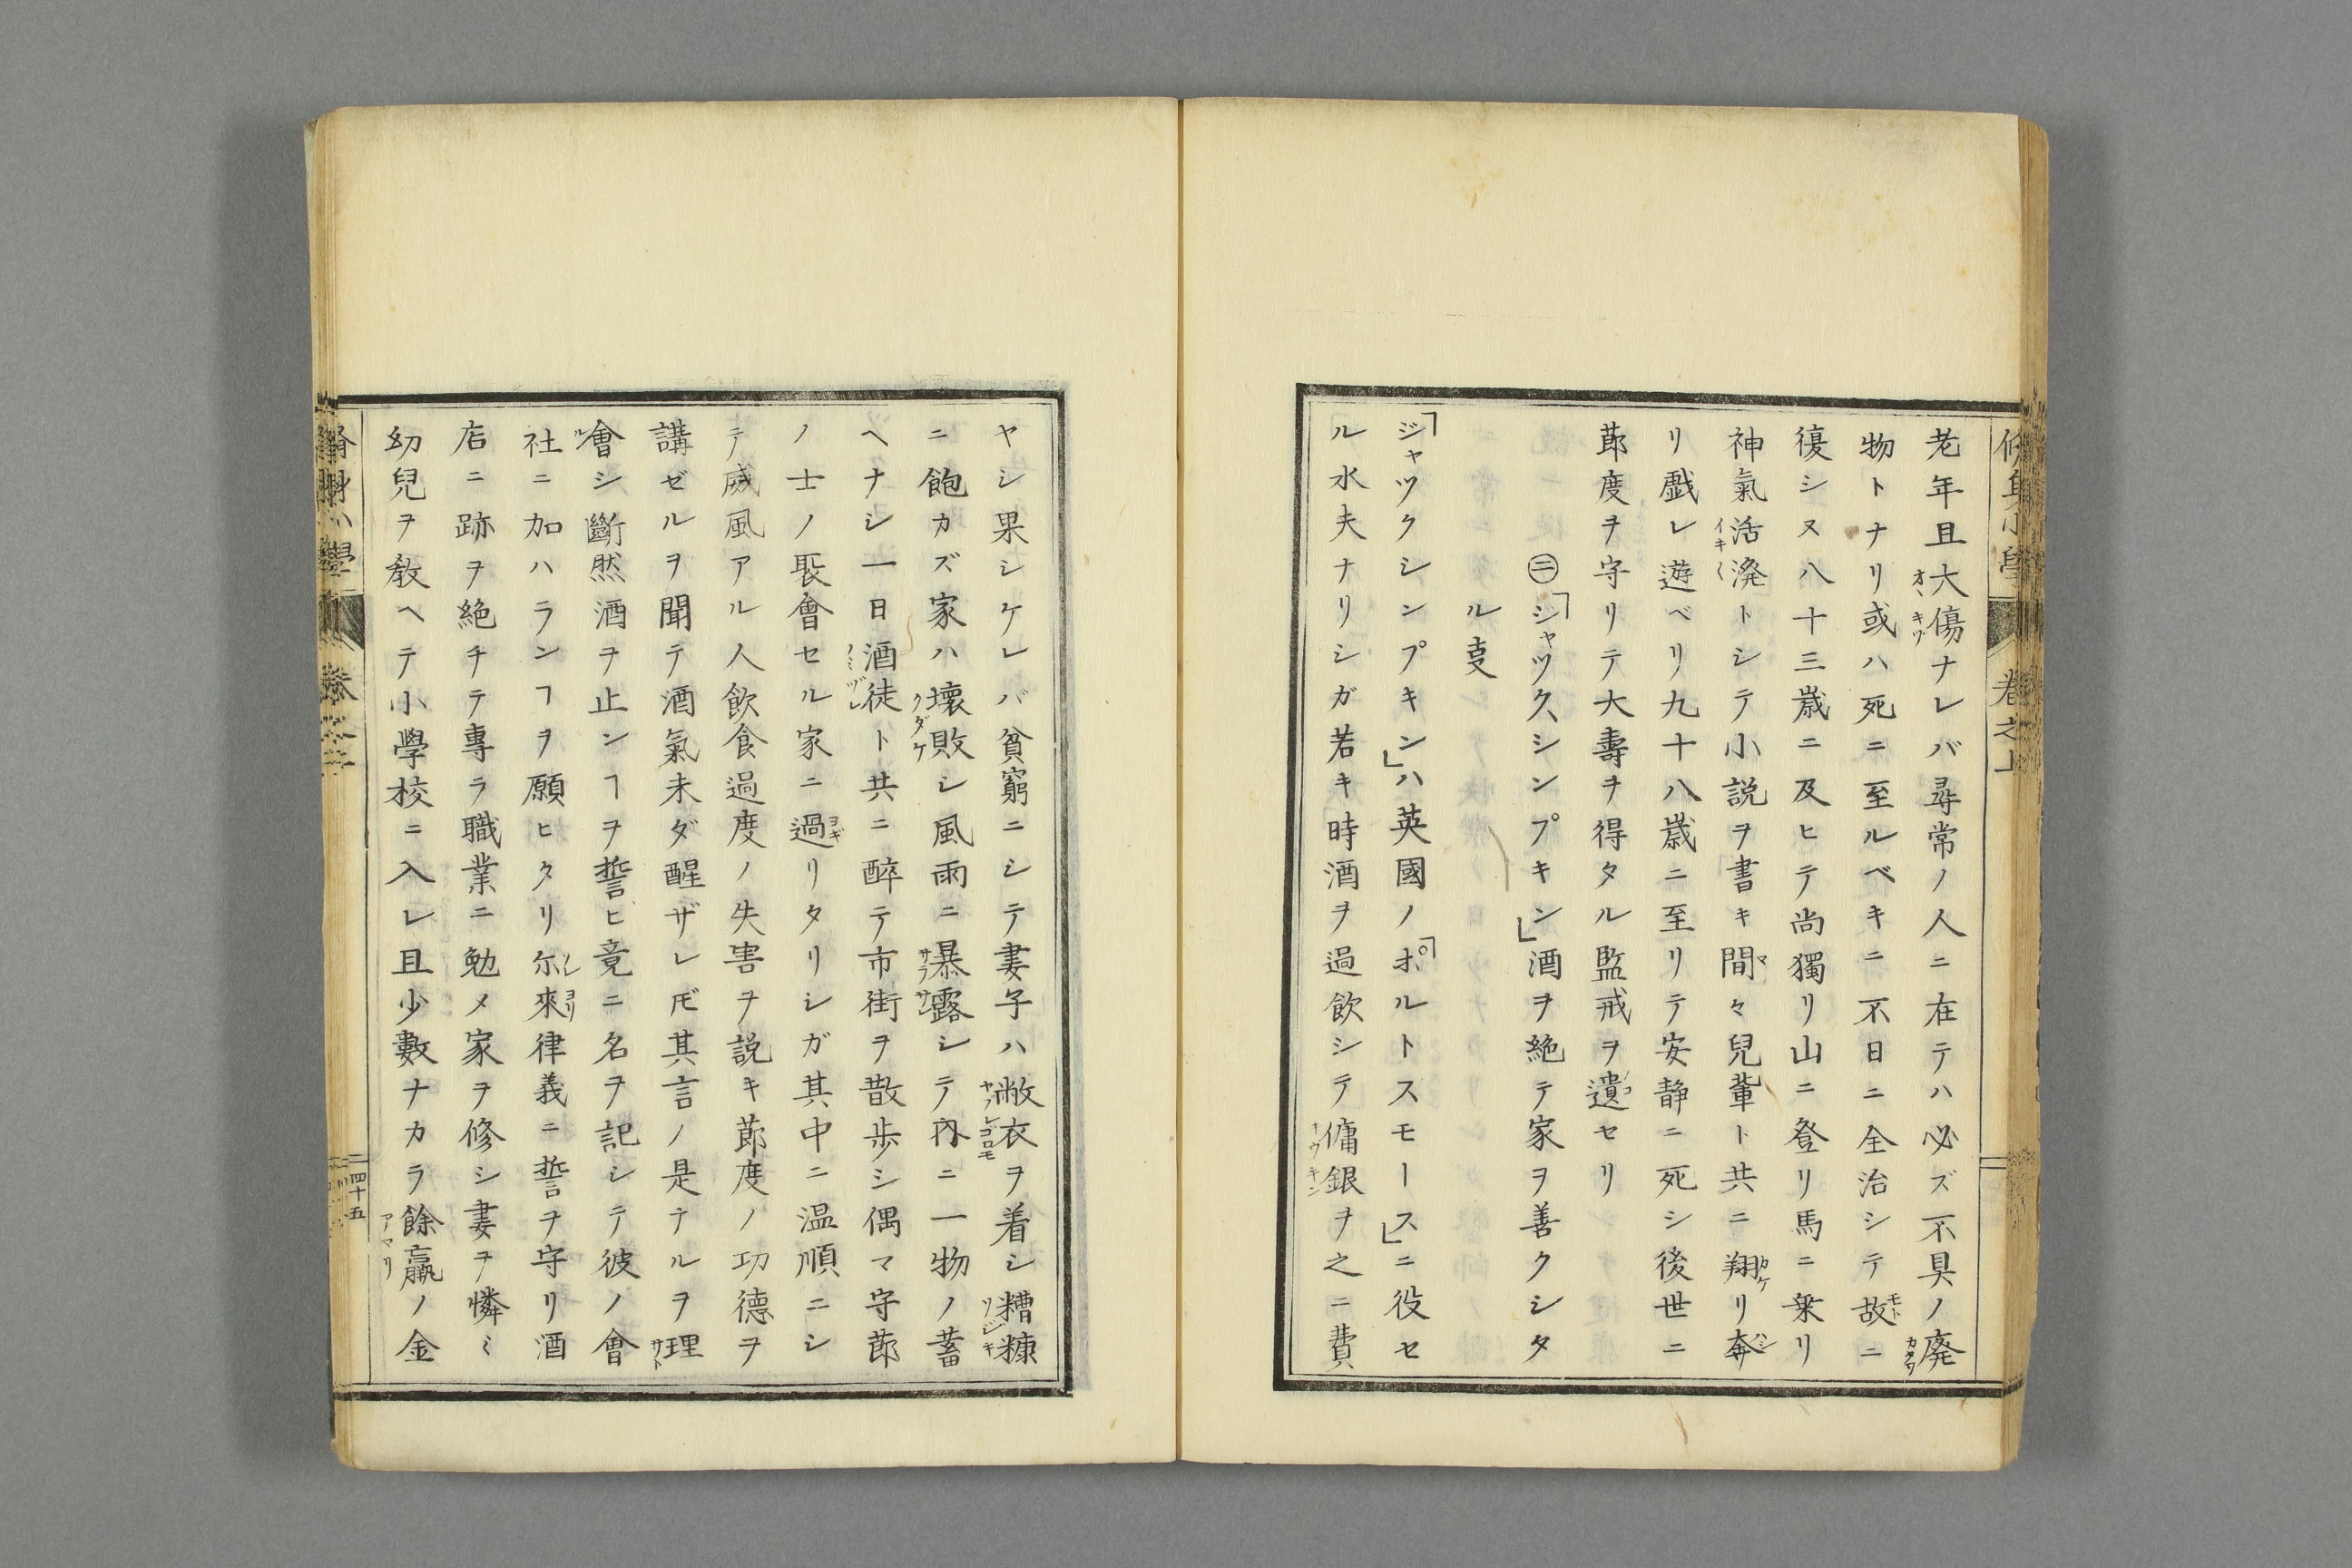 老年且大傷ナレバ尋常ノ人ニ在テハ必ズ不具ノ廃
物トナリ或ハ死ニ至ルベキニ不日ニ全治シテ故ニ
復シヌ八十三歳ニ及ヒテ尚獨リ山ニ登リ馬ニ乗リ
神氣活潑トシテ小説ヲ書キ間々兒輩ト共ニ翔リ奔
リ戯レ遊ベリ九十八歳ニ至リテ安静ニ死シ後世ニ
莭度ヲ守リテ大壽ヲ得タル監戒ヲ遺セリ
㊁「シャツクシンプキン」酒ヲ絶テ家ヲ善クシタ
ル叓
「ジャツクシンプキン」ハ英國ノ「ポルトスモース」ニ役セ
ル水夫ナリシガ若キ時酒ヲ過飲シテ傭銀ヲ之ニ費
ヤシ果シケレバ貧窮ニシテ妻子ハ敝衣ヲ着シ糟糠
ニ飽カズ家ハ壊敗シ風雨ニ暴露シテ内ニ一物ノ蓄
ヘナシ一日酒徒ト共ニ醉テ市街ヲ散歩シ偶マ守莭
ノ士ノ聚會セル家ニ過リタリシガ其中ニ温順ニシ
テ威風アル人飲食過度ノ失害ヲ説キ莭度ノ功德ヲ
講ゼルヲ聞テ酒氣未ダ醒ザレ𪜈其言ノ是ナルヲ理
會シ斷然酒ヲ止ンヿヲ誓ヒ竟ニ名ヲ記シテ彼ノ會
社ニ加ハランヿヲ願ヒタリ尔來律義ニ誓ヲ守リ酒
店ニ跡ヲ絶チテ專ラ職業ニ勉メ家ヲ修シ妻ヲ憐ミ
幼兒ヲ敎ヘテ小學校ニ入レ且少數ナカラ餘羸ノ金
四十五